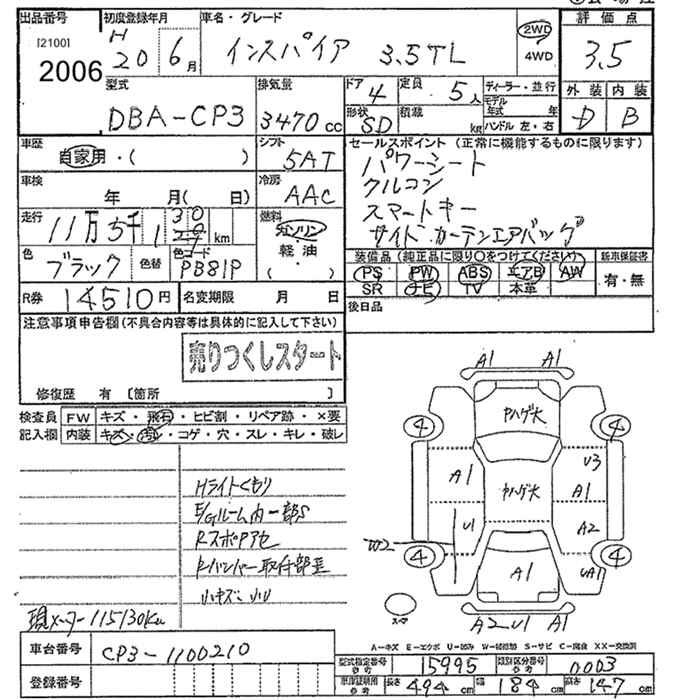 出品番号
I21001
2006
初度登録年月
H 20 6月
車名・グレード
インスパイア 3.5TL
2WD
4WD
評価点
3.5
外装 内装
D B
型式
DBA-CP3
排気量
3470cc
ドア 4
形状 SD
定員 5人
積載 kg
ディーラー・並行
モデル年式 年
ハンドル 左・右
車歴
自家用・( )
シフト
5AT
車検
年 月( 日)
冷房
AAC
走行
11万5千130km
燃料
ガソリン
軽油
( )
色
ブラック
色替
色コード
PB81P
セールスポイント(正常に機能するものに限ります)
パワーシート
クルコン
スマートキー
サイド・カーテンエアバッグ
装備品(純正品に限り○をつけてください)
新車保証書
PS PW ABS エアB AW
SR ナビ TV 本革
有・無
R券 14510円
名変期限 月 日
後日品
注意事項申告欄(不具合内容等は具体的に記入して下さい)
売りつくしスタート
修復歴 有 〔箇所 〕
検査員 FW キズ・飛石・ヒビ割・リペア跡・×要
記入欄 内装 キズ・汚レ・コゲ・穴・スレ・キレ・破レ
Hライトくもり
E/Gルーム内一部S
Rスポアセ
Rバンパー取付部歪
小キズ・凹
現メーター115130Km
A1 A1
ヤハゲ大
4 4
A1
ヤハゲ大
U3
A1
U1
A2
W2
4 4
A1
UA1
A2 U1 A1
スペア
A-キズ E-エクボ U-凹み W-補修跡 S-サビ C-腐食 XX-交換済
車台番号 CP3-1100210
登録番号
型式指定番号 参考 15995
類別区分番号 参考 0003
車庫証明用 参考 長さ 494cm 幅 184cm 高さ 147cm